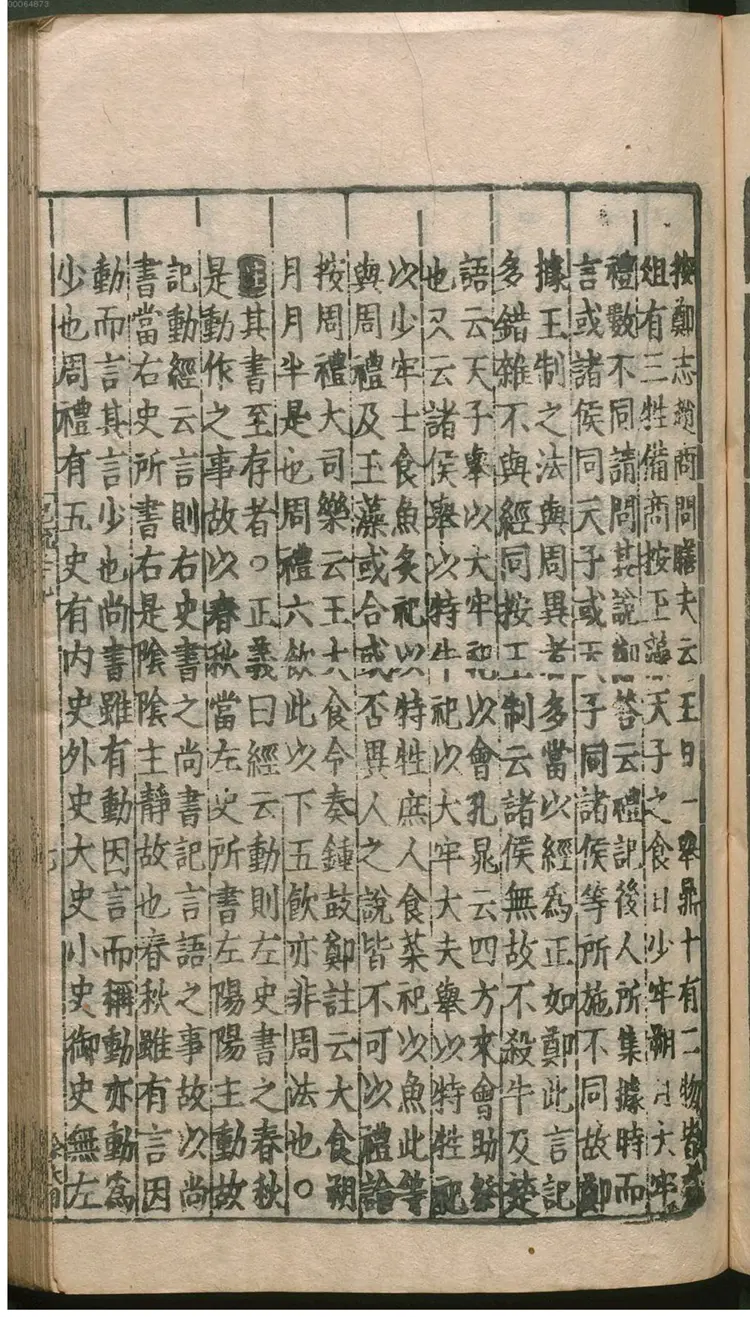 按鄭志趙商問膳夫云王日一舉鼎十有二物皆有
俎有三牲備商按玉藻天子之食日少牢朔月大牢
禮數不同請問其說鄭答云禮記後人所集據時而
言或諸侯同天子或天子同諸侯等所施不同故鄭
據王制之法與周異者多當以經爲正如鄭此言記
多錯雜不與經同按王制云諸侯無故不殺牛及楚
語云天子舉以大牢祀以會孔晁云四方來會助祭
也又云諸侯舉以特牛祀以大牢大夫舉以特牲祀
以少牢士食魚炙祀以特牲庶人食菜祀以魚此等
與周禮及玉藻或合或否異人之說皆不可以禮論
按周禮大司樂云王大食令奏鍾鼓鄭註云大食朔
月月半是也周禮六飲此以下五飲亦非周法也○
註其書至存者○正義曰經云動則左史書之春秋
是動作之事故以春秋當左史所書左陽陽主動故
記動經云言則右史書之尚書記言語之事故以尚
書當右史所書右是陰陰主靜故也春秋雖有言因
動而言其言少也尚書雖有動因言而稱動亦動爲
少也周禮有五史有內史外史大史小史御史無左
00064873